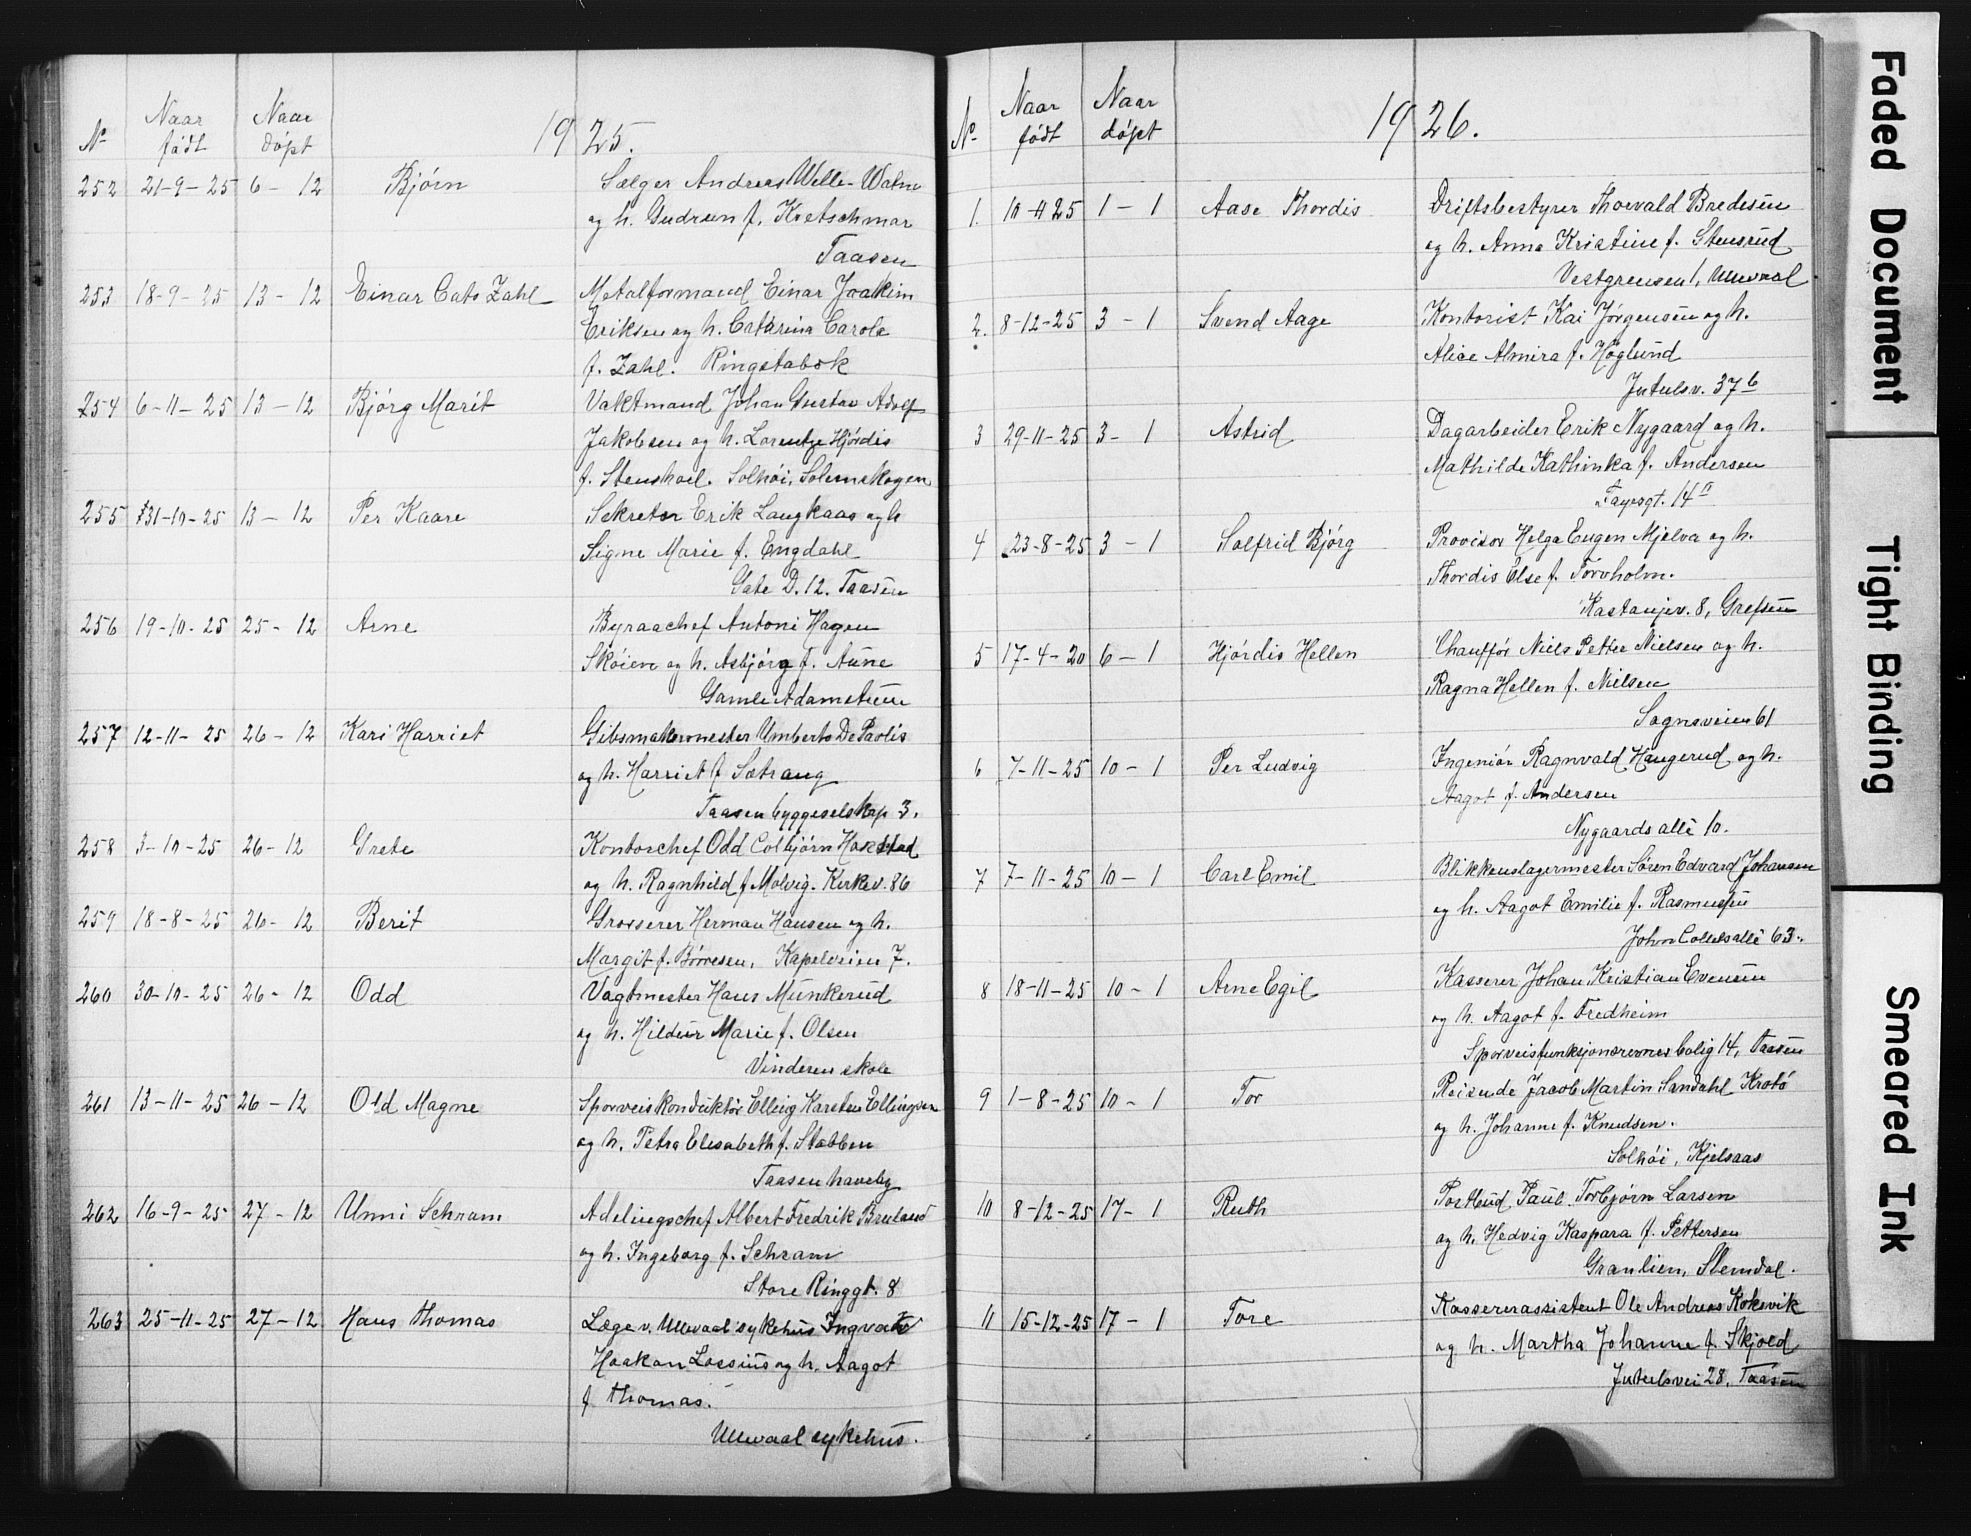 1925.
Nr Naar født Naar døpt
252 21-9-25 6-12 Bjørn Sælger Andreas Welle-Watne
og h. Gudrun f. Kretschmar
Taasen
253 18-9-25 13-12 Einar Cato Zahl Metalformand Einar Joakim
Eriksen og h. Catarina Carola
f. Zahl. Ringstabæk
254 6-11-25 13-12 Bjørg Marit Vaktmand Johan Gustav Adolf
Jakobsen og h. Lorentze Hjórdis
f. Solhói, Solemskogen
255 31-10-25 13-12 Per Kaare Sekretær Erik Langkaas og h
Signe Marie f. Engdahl
Gate D. 12. Taasen
256 19-10-25 25-12 Arne Byraachef Antoni Hagen
Skóien og h. Asbjórg f. Aune
Gamle Adamstuen
257 12-11-25 26-12 Kari Harriet Gibsmakermester Umberto De Paolis
og h. Harriet f Sætrang
Taasen byggeselskap 3.
258 3-10-25 26-12 Grete Kontorchef Odd Colbjørn
og h. Ragnhild f Molvig. Kirkev. 86
259 18-8-25 26-12 Berit Grosserer Herman Hansen og h.
Margit f. Børresen, Kapelveien 7.
260 30-10-25 26-12 Odd Vagtmester Hans Munkerud
og h. Hildur Marie f. Olsen
Vinderen skole
261 13-11-25 26-12 Odd Magne Sporveiskonduktør Elling Karsten Ellingsen
og h. Petra Elisabeth f. Stabben
Taasen haveby
262 16-9-25 27-12 Unni Schram Adelingschef Albert Fredrik Bruland
og h. Ingeborg f. Schram
Store Ringgt. 8
263 25-11-25 27-12 Hans Thomas Læge v. Ullevaal sykehus Ingvald
Haakon Lossius og h. Aagot
f Thomas.
Ullevaal sykehus.
1926.
Nr Naar født Naar døpt
1. 10-11 25 1-1 Aase Thordis Driftsbestyrer Thorvald Bredesen
og h. Anna Kristine f. Stensrud
Vestgrensen 1, Ullevaal
2. 8-12-25 3-1 Svend Aage Kontorist Kai Jørgensen og h.
Alice Almira f. Höglund
Jutulsv. 37b
3 29-11-25 3-1 Astrid Dagarbeider Erik Nygaard og h.
Mathilde Kathinka f. Andersen
14 II
4 23-8-25 3-1 Solfrid Bjórg Provisor Helge Eugen Mjelva og h.
Thordis Else f. Torvholm.
Kastanjev. 8, Grefsen
5 17-4-20 6-1 Hjórdis Hellen Chauffór Niels Petter Nielsen og h.
Ragna Hellen f. Nielsen
Sognsveien 61
6 7-11-25 10-1 Per Ludvig Ingeniór Ragnvald Haugerud og h.
Aagot f. Andersen
Nygaards allè 10.
7 7-11-25 10-1 Carl Emil Blikkenslagermester Søren Edvard Johansen
og h. Aagot Emilie f. Rasmussen
John Colletsallé 63.
8 18-11-25 10-1 Arne Egil Kasserer Johan Kristian Evensen
og h. Aagot f. Fredheim
Sporveisfunksjonærernes bolig 14, Taasen
9 1-8-25 10-1 Tor Reisende Jacob Martin Sandahl Krobó
og h. Johanne f. Knudsen.
Solhói, Kjelsaas
10 8-12-25 17-1 Ruth Postbud Paul Torbjørn Larsen
og h. Hedvig Kaspara f. Pettersen
Granlien, Slemdal.
11 15-12-25 17-1 Tore Kassererassistent Ole Andreas Koksvik
og h. Martha Johanne f. Skjold
Jutulsvei 28, Taasen
Faded Document
Tight Binding
Smeared Ink